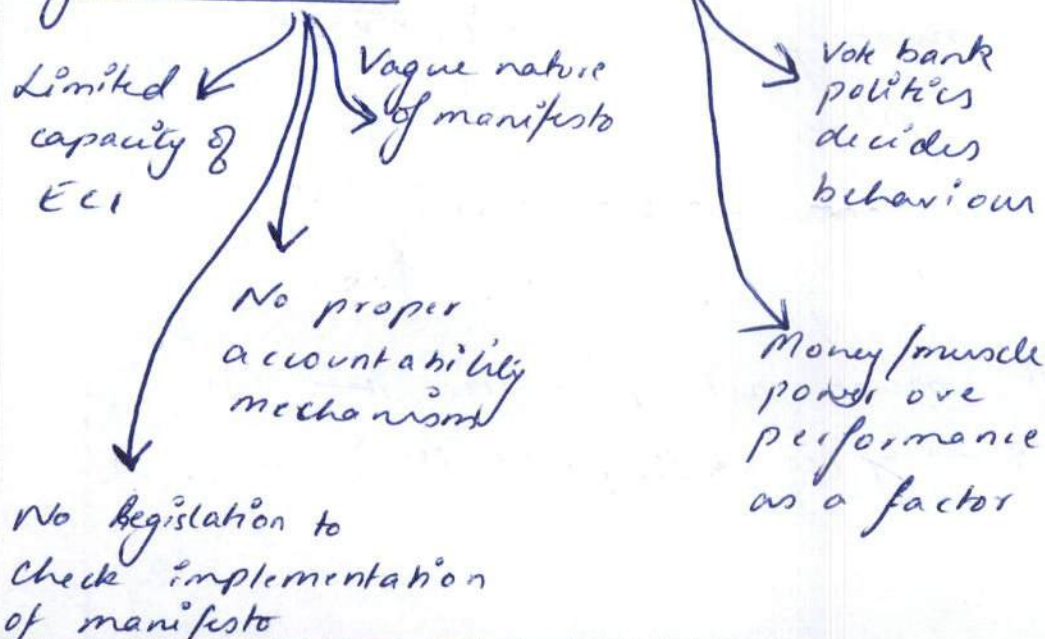 Limited
capacity of
ECI
Vague nature
of manifesto
No proper
accountability
mechanism
No legislation to
check implementation
of manifesto
Vote bank
politics
decides
behaviour
Money/muscle
power ove
performance
as a factor